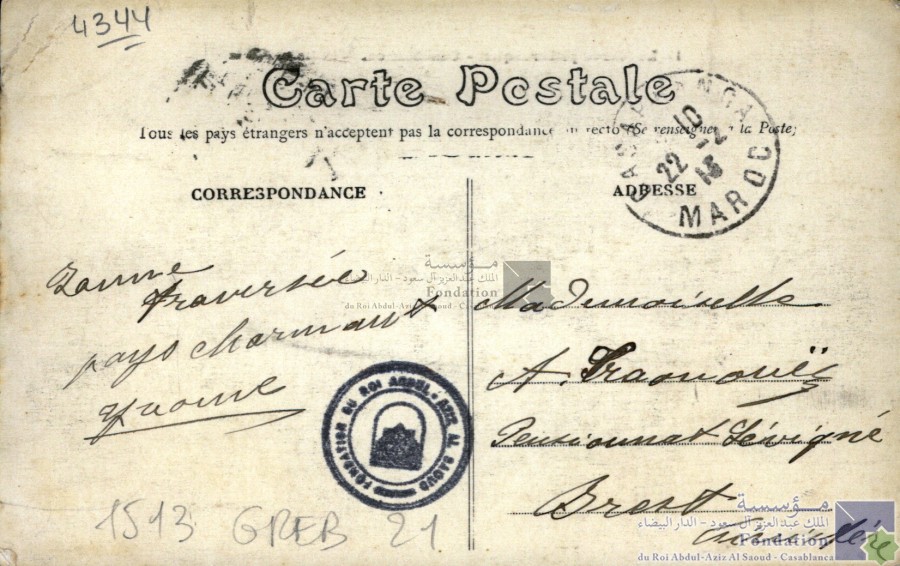 4344
Carte Postale
Tous les pays étrangers n'acceptent pas la correspondance au recto (Se renseigner à la Poste)
CORRESPONDANCE
ADRESSE
CASABLANCA
10
22 -2
13
MAROC
Bonne
traversée
pays charmant
Yvonne
Mademoiselle
A.
Pensionnat Sévigné
Brest
FONDATION DU ROI ABDUL-AZIZ AL SAOUD
1513 GREB 21
مؤسسة
الملك عبد العزيز آل سعود - الدار البيضاء
Fondation
du Roi Abdul-Aziz Al Saoud - Casablanca
مؤسسة
الملك عبد العزيز آل سعود - الدار البيضاء
Fondation
du Roi Abdul-Aziz Al Saoud - Casablanca